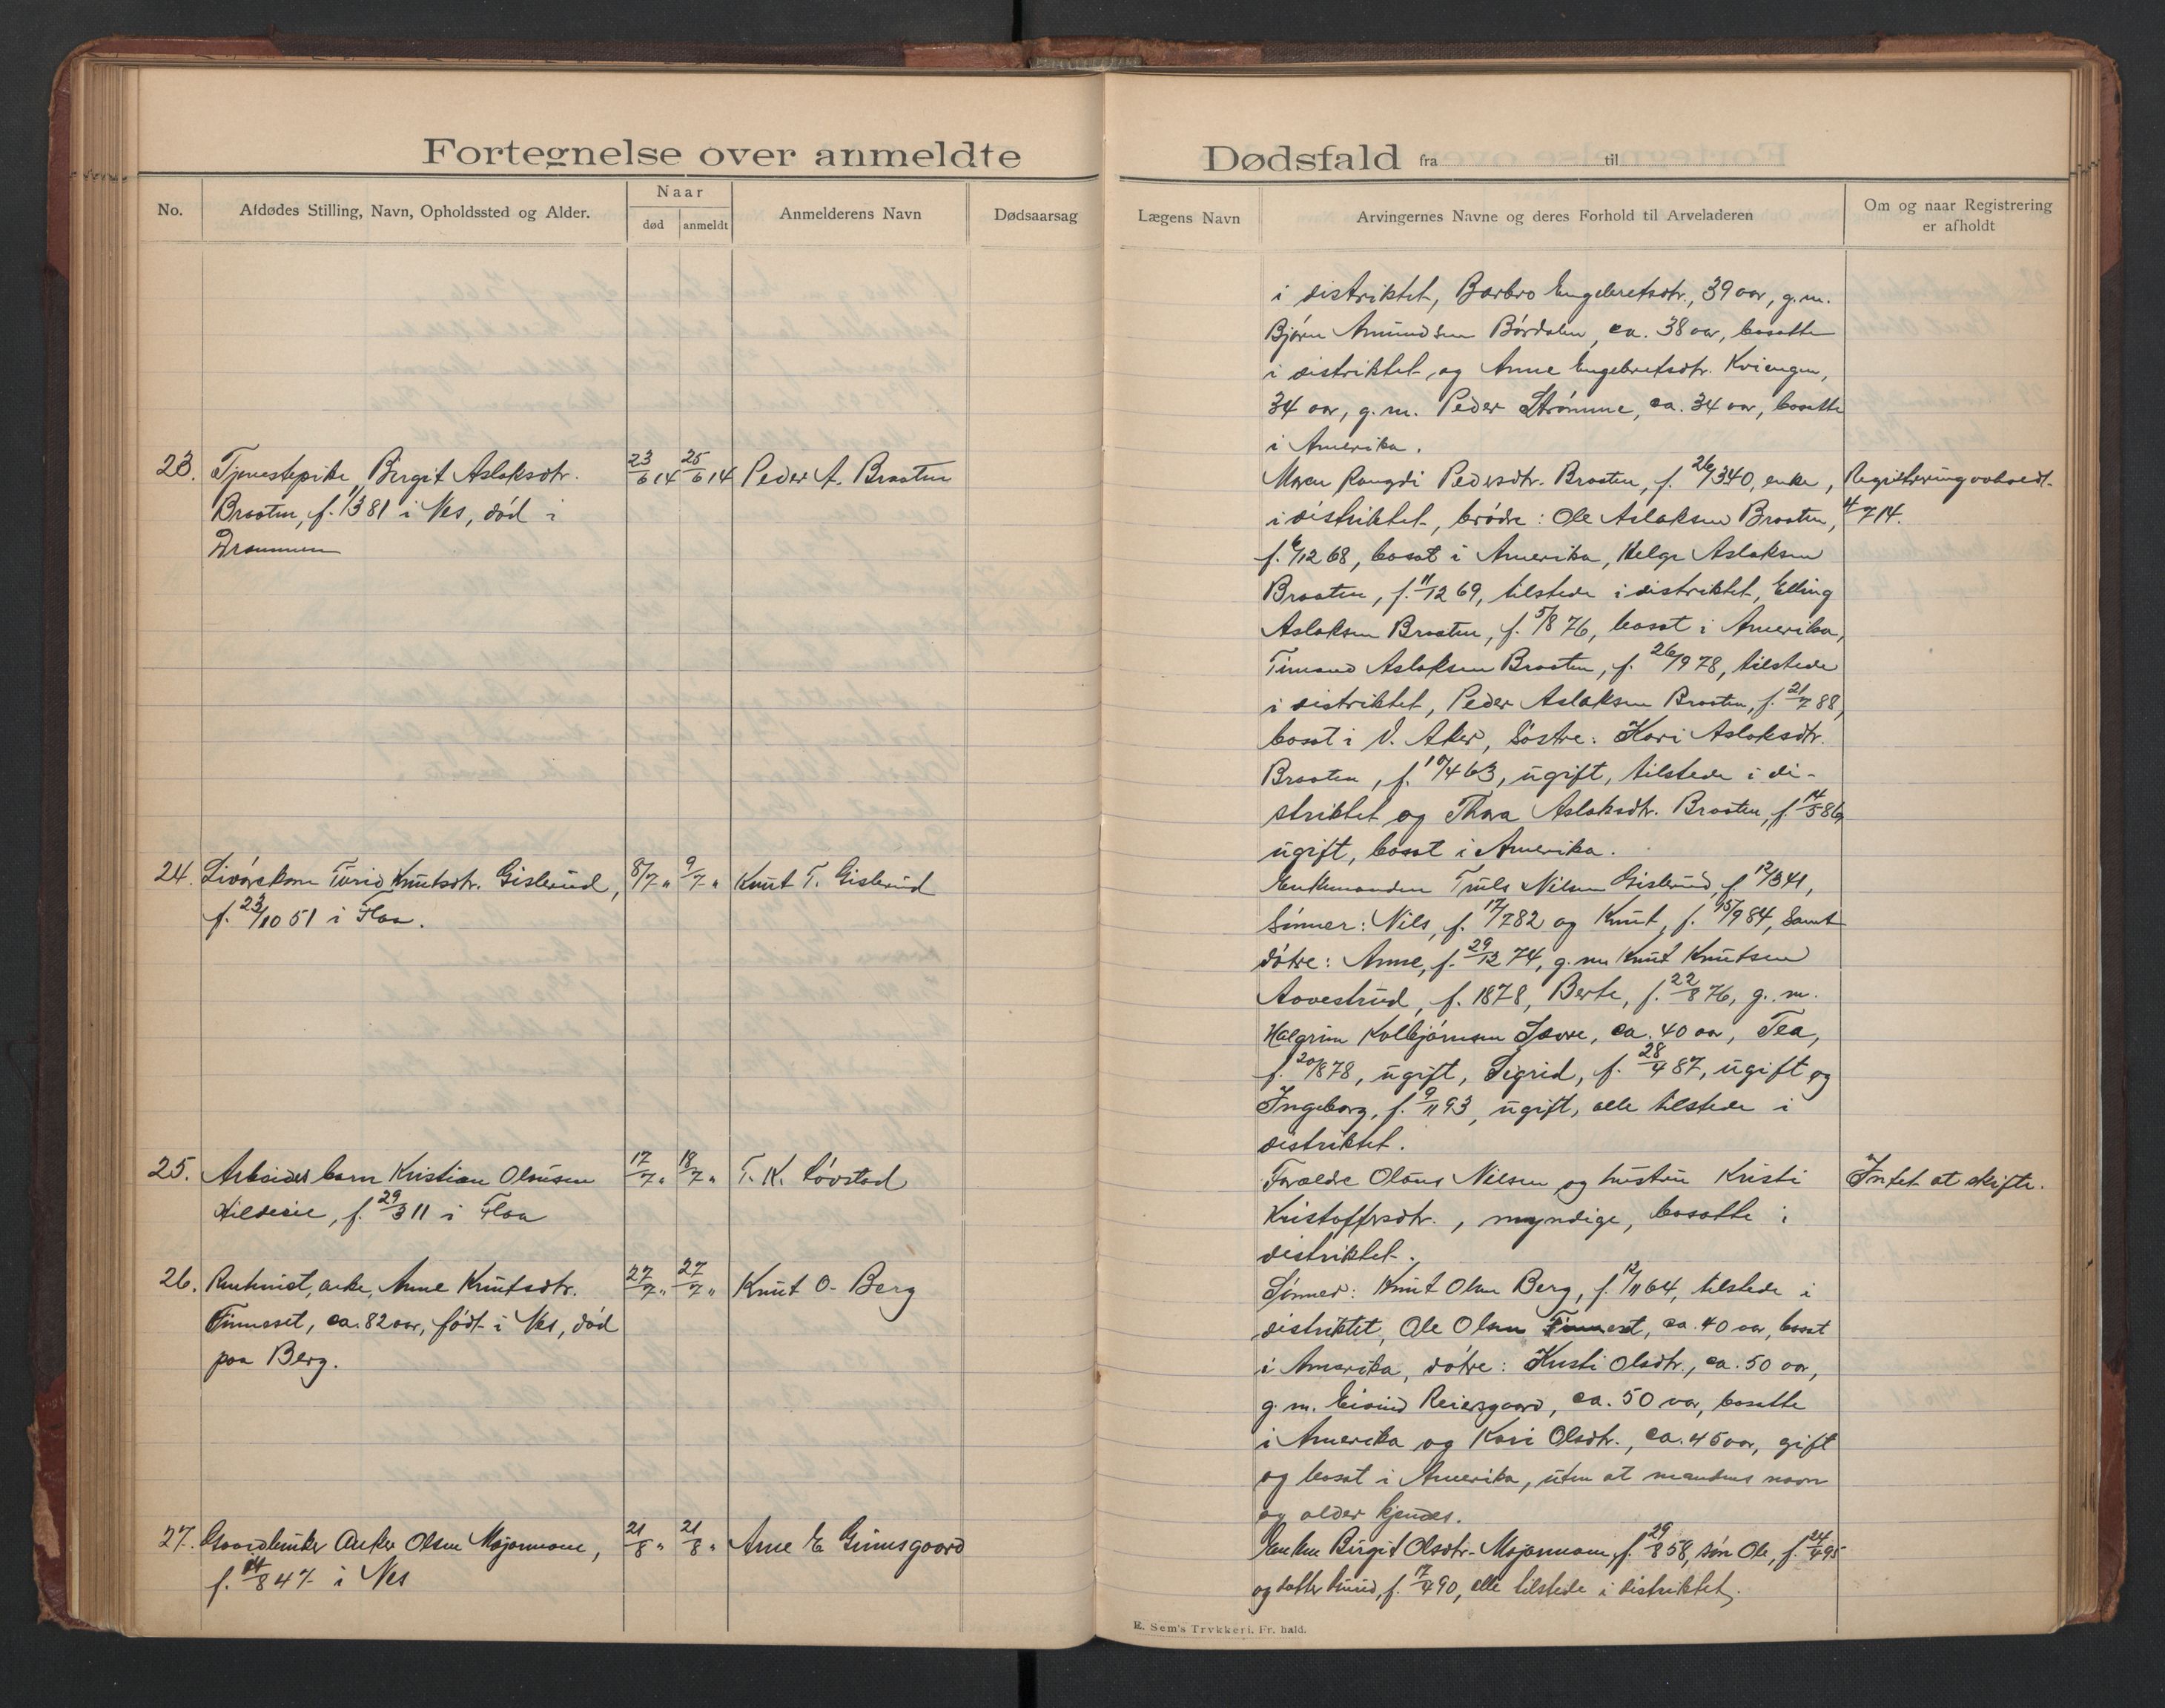 Fortegnelse over anmeldte Dødsfald fra til
No.
Afdødes Stilling, Navn, Opholdssted og Alder.
Naar
død
anmeldt
Anmelderens Navn
Dødsaarsag
Lægens Navn
Arvingernes Navne og deres Forhold til Arveladeren
Om og naar Registrering
er afholdt
i distriktet, Barbro Engebretsdtr., 39 aar, g.m.
Bjørn Amundsen Børdalen, ca. 38 aar, bosatte
i distriktet og Anne Engebretsdtr. Kviengen,
34 aar, g.m. Peder Strømme, ca. 34 aar, bosatte
i Amerika.
23. Tjenestepike Birgit Aslaksdtr. 23/6 14 25/6 14 Peder A. Braaten
Braaten, f. 11/3 81 i Nes, død i
Drammen
Moren Rangdi Pedersdtr. Braaten, f. 26/3 40, enke,
i distriktet, brødre: Ole Aslaksen Braaten,
f. 6/12 68, bosat i Amerika, Helge Aslaksen
Braaten, f. 11/12 69, tilstede i distriktet, Elling
Aslaksen Braaten, f. 5/8 76, bosat i Amerika,
Timand Aslaksen Braaten, f. 26/9 78, tilstede
i distriktet, Peder Aslaksen Braaten, f. 21/7 88,
bosat i V. Aker, søstre: Kari Aslaksdtr.
Braaten, f. 10/4 63, ugift, tilstede i di-
striktet og Thora Aslaksdtr. Braaten, f. 14/5 86,
ugift, bosat i Amerika.
Registrering avholdt
4/7 14.
24. Livørskone Turid Knutsdtr. Gislerud, 8/7 " 9/7 " Knut T. Gislerud
f. 23/10 51 i Flaa.
Enkemanden Truls Nilsen Gislerud, f. 12/3 41,
Sønner: Nils, f. 17/7 82 og Knut, f. 15/9 84, samt
døtre: Anne, f. 29/12 74, g.m. Knut Knutsen
Aavestrud, f. 1878, Berte, f. 22/8 76, g.m.
Halgrim Kolbjørnsen Sævre, ca. 40 aar, Tea,
f. 20/8 78, ugift, Sigrid, f. 28/4 87, ugift og
Ingeborg, f. 9/11 93, ugift, alle tilstede i
distriktet.
25. Arbeiderbarn Kristian Olausen 17/7 " 18/7 " T. K. Løvstad
Hildeeie, f. 29/3 11 i Flaa
Forældre Olaus Nilsen og hustru Kristi
Kristoffersdtr., myndige, bosatte i
distriktet.
Intet at skifte.
26. enke, Anne Knutsdtr. 27/7 " 27/7 " Knut O. Berg
Finneset, ca. 82 aar, født i Nes, død
paa Berg.
Sønner: Knut Olsen Berg, f. 12/11 64, tilstede i
distriktet, Ole Olsen Finneset, ca. 40 aar, bosat
i Amerika, døtre: Kristi Olsdtr., ca. 50 aar,
g.m. Eivind Reiersgaard, ca. 50 aar, bosatte
i Amerika og Kari Olsdtr., ca. 45 aar, gift
og bosat i Amerika, uten at mandens navn
og alder kjendes.
27. Gaardbruker Anker Olsen Mojanmoen, 21/8 " 21/8 " Arne E Grimsgaard
f. 14/8 47 i Nes
Enken Birgit Olsdtr. Mojanmoen, f. 29/8 58, søn Ole, f. 24/4 95
og datter f. 17/4 90, alle tilstede i distriktet.
E. Sem's Trykkeri, Fr.hald.